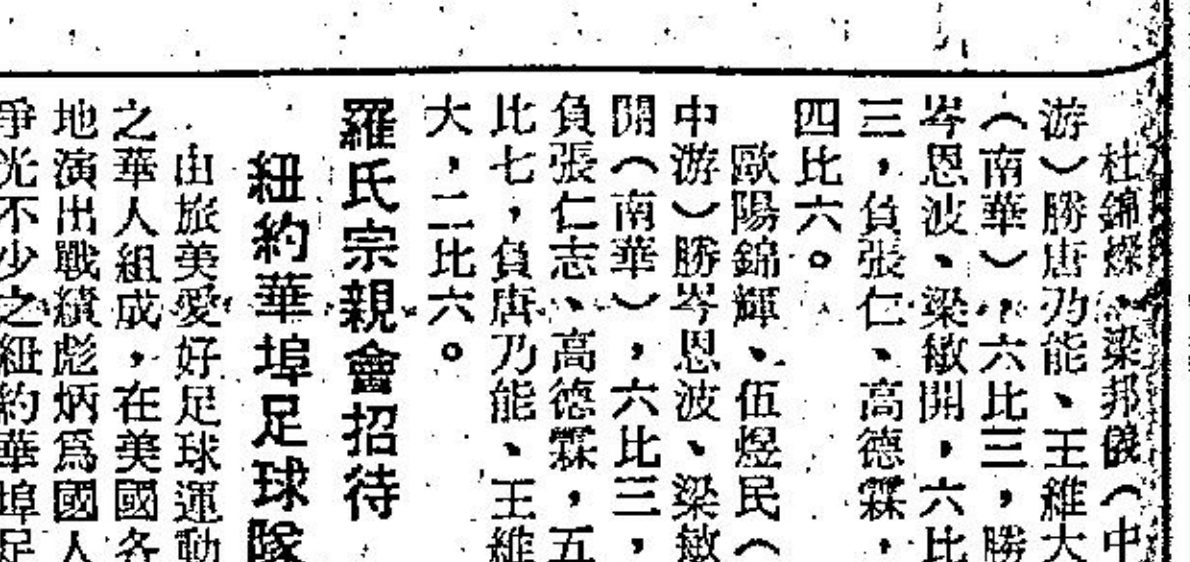 杜錦燦、梁邦儀（中
游）勝唐乃能、王維大
（南華），六比三，勝
岑恩波、梁敏開，六比
三，負張仁、高德霖，
四比六。
歐陽錦輝、伍煜民（
中游）勝岑恩波、梁敏
開（南華），六比三，
負張仁志、高德霖，五
比七，負唐乃能、王維
大，二比六。
羅氏宗親會招待
紐約華埠足球隊
由旅美愛好足球運動
之華人組成，在美國各
地演出戰績彪炳爲國人
爭光不少之紐約華埠足